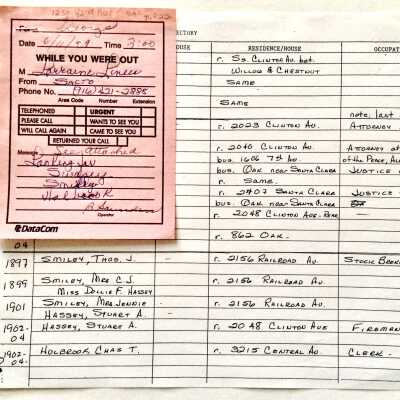 Date 6/1/89 Time 3:00
WHILE YOU WERE OUT
M Lorraine
From SACTO
Phone No. (916) 421-2888
Area Code Number Extension
TELEPHONED URGENT
PLEASE CALL WANTS TO SEE YOU
WILL CALL AGAIN CAME TO SEE YOU
RETURNED YOUR CALL
Message See Attached
Looking for
Surname
Smiley
Holbrook
Operator
DataCom
DIRECTORY
HOUSE RESIDENCE/HOUSE OCCUPAT
r. Ss. Clinton Av. bet.
Willow & Chestnut
Same
Same
note, last
r. 2023 Clinton Av. Attorney
r. 2040 Clinton Av. Attorney at
bus. 1606 7th Av. of the Peace, Au
bus. Oak near Santa Clara Justice
r. Same.
r. 2407 Santa Clara Justice
bus. Oak near Santa Clara
r. 2048 Clinton Ave. Rear
r. 862 Oak
04
1897 Smiley, Thos. J. - r. 2156 Railroad Av. Stock Brok
1899 Smiley, Mrs C J. r. 2156 Railroad Av.
Miss Dollie F. Hassey
1901 Smiley, Mrs Jennie - r. 2156 Railroad Av.
Hassey, Stuart A. -
1902-04 Hassey, Stuart A. r. 2048 Clinton Ave Fireman
1902-04 Holbrook, Chas T. r. 3215 Central Av. Clerk -